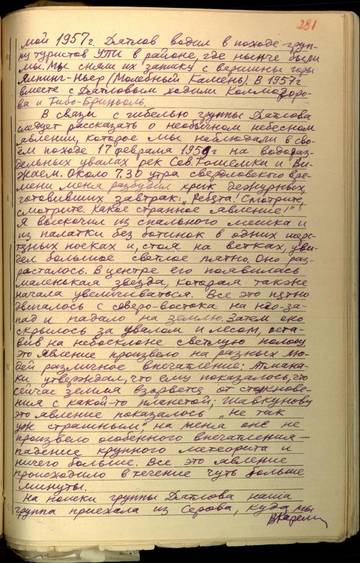 281
мой 1957г. Дятлов водил в походе груп-
пу туристов УПИ в районе, где нынче были
мы. Мы сняли их записку с вершины горы
Ялпинг-Ньер (Молебный Камень). В 1957г
вместе с Дятловым ходили Колмогоро-
ва и Тибо-Бриньоль.
В связи с гибелью группы Дятлова
следует рассказать о необычном небесном
явлении, которое мы наблюдали в сво-
ем походе 17 февраля 1959г на водораз-
дельных увалах рек Сев.Тошемки и Ви-
жаем. Около 7.30 утра свердловского вре-
мени меня разбудил крик дежурных,
готовивших завтрак: „Ребята! Смотрите,
смотрите! Какое странное явление!"
Я выскочил из спального мешка и
из палатки без ботинок в одних шер-
стяных носках и, стоя на ветках, уви-
дел большое светлое пятно. Оно раз-
расталось. В центре его появилась
маленькая звезда, которая также
начала увеличиваться. Все это пятно
двигалось с северо-востока на юго-за-
пад и падало на землю. Затем оно
скрылось за увалом и лесом, оста-
вив на небосклоне светлую полосу.
Это явление произвело на разных лю-
дей различное впечатление: Атмана-
ки утверждал, что ему показалось, что
сейчас земля взорвется от столкнове-
ния с какой-то планетой; Шавкунову
это явление показалось „не так
уж страшным", на меня оно не
произвело особенного впечатления –
падение крупного метеорита и
ничего больше. Все это явление
происходило в течение чуть больше
минуты.
На поиски группы Дятлова наша
группа приехала из Серова, куда мы
ВКарелин